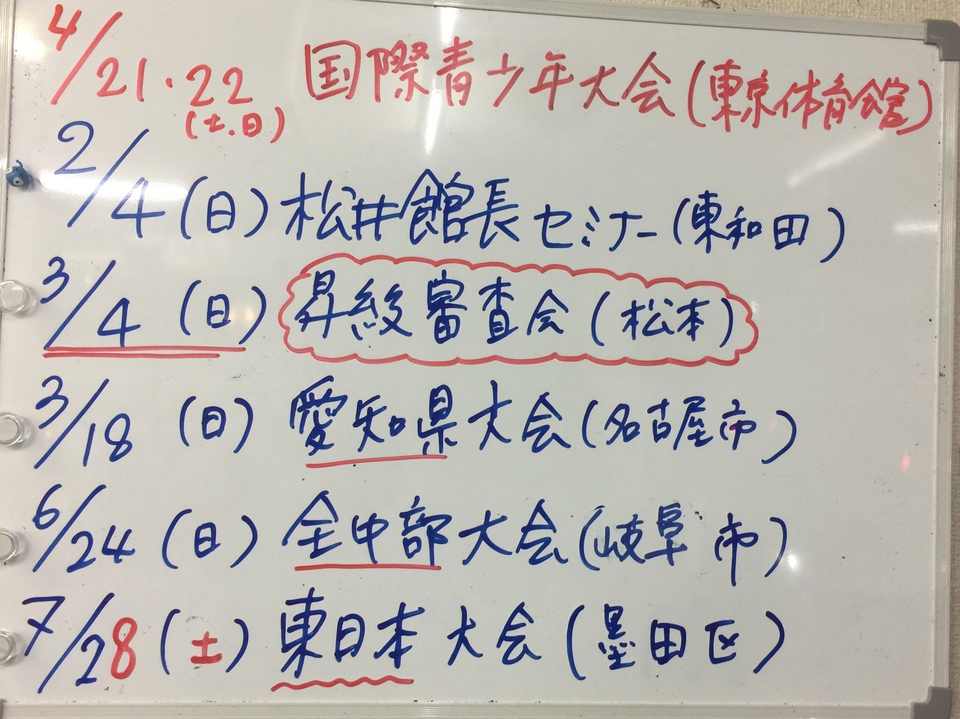 4/21・22 国際青少年大会(東京体育館)
(土.日)
2/4(日)松井館長セミナー(東和田)
3/4(日)昇級審査会(松本)
3/18(日)愛知県大会(名古屋市)
6/24(日)全中部大会(岐阜市)
7/28(土)東日本大会(墨田区)